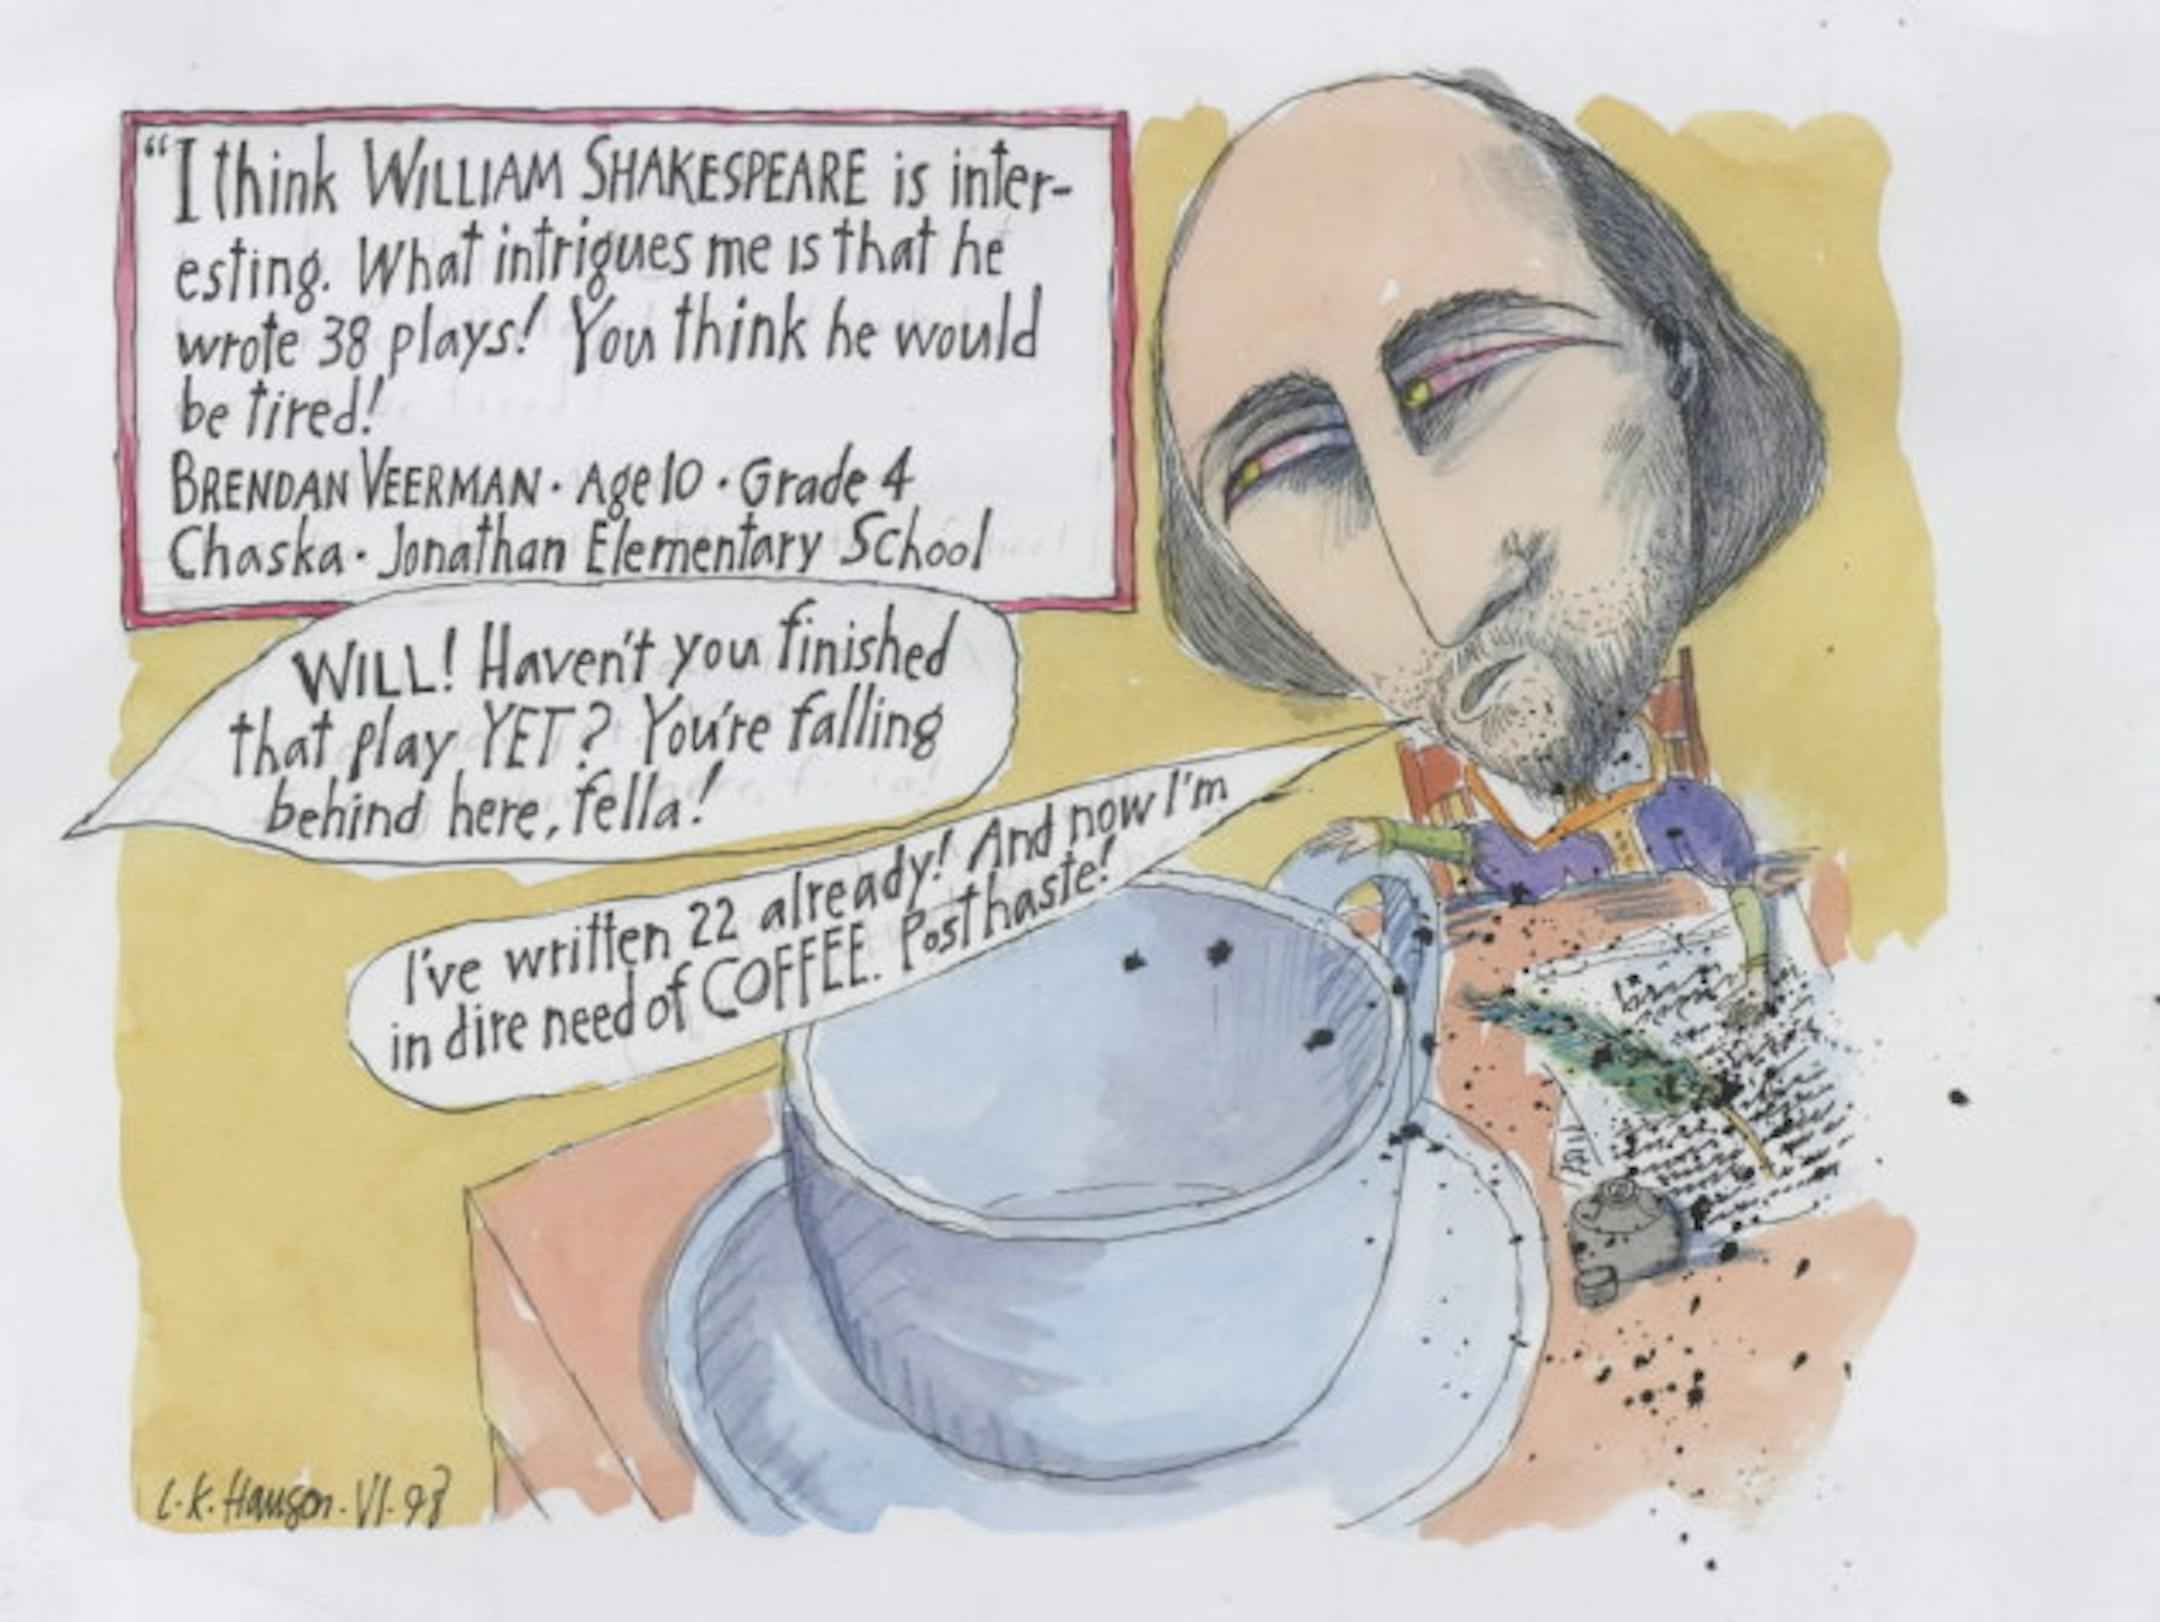 “I think WILLIAM SHAKESPEARE is inter-
esting. What intrigues me is that he
wrote 38 plays! You think he would
be tired!
BRENDAN VEERMAN · Age 10 · Grade 4
Chaska · Jonathan Elementary School
WILL! Haven't you finished
that play YET? You're falling
behind here, fella!
I've written 22 already! And now I'm
in dire need of COFFEE. Post haste!
L·K·Hanson·VI·98